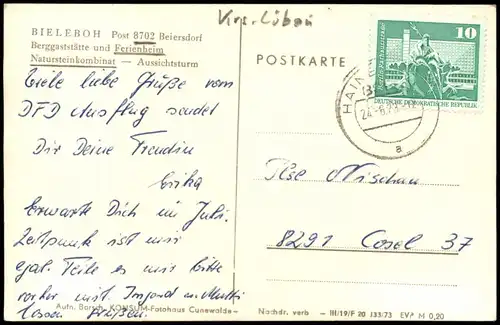 BIELEBOH Post 8702 Beiersdorf
Berggaststätte und Ferienheim
Natursteinkombinat — Aussichtsturm
Viele liebe Grüße vom
DFD Ausflug sendet
Dir Deine Freundin
Erika
Erwarte Dich im Juli.
Zeitpunkt ist mir
egal. Teile es mir bitte
vorher mit. Irmgard u. Mutti
lassen grüßen.
Aufn. Barsch, KONSUM-Fotohaus Cunewalde
Krs. Löbau
POSTKARTE
10
DEUTSCHE DEMOKRATISCHE REPUBLIK
a
Ilse Nischan
8291 Cosel 37
Nachdr. verb - III/19/F 20 133/73 EVP M 0,20